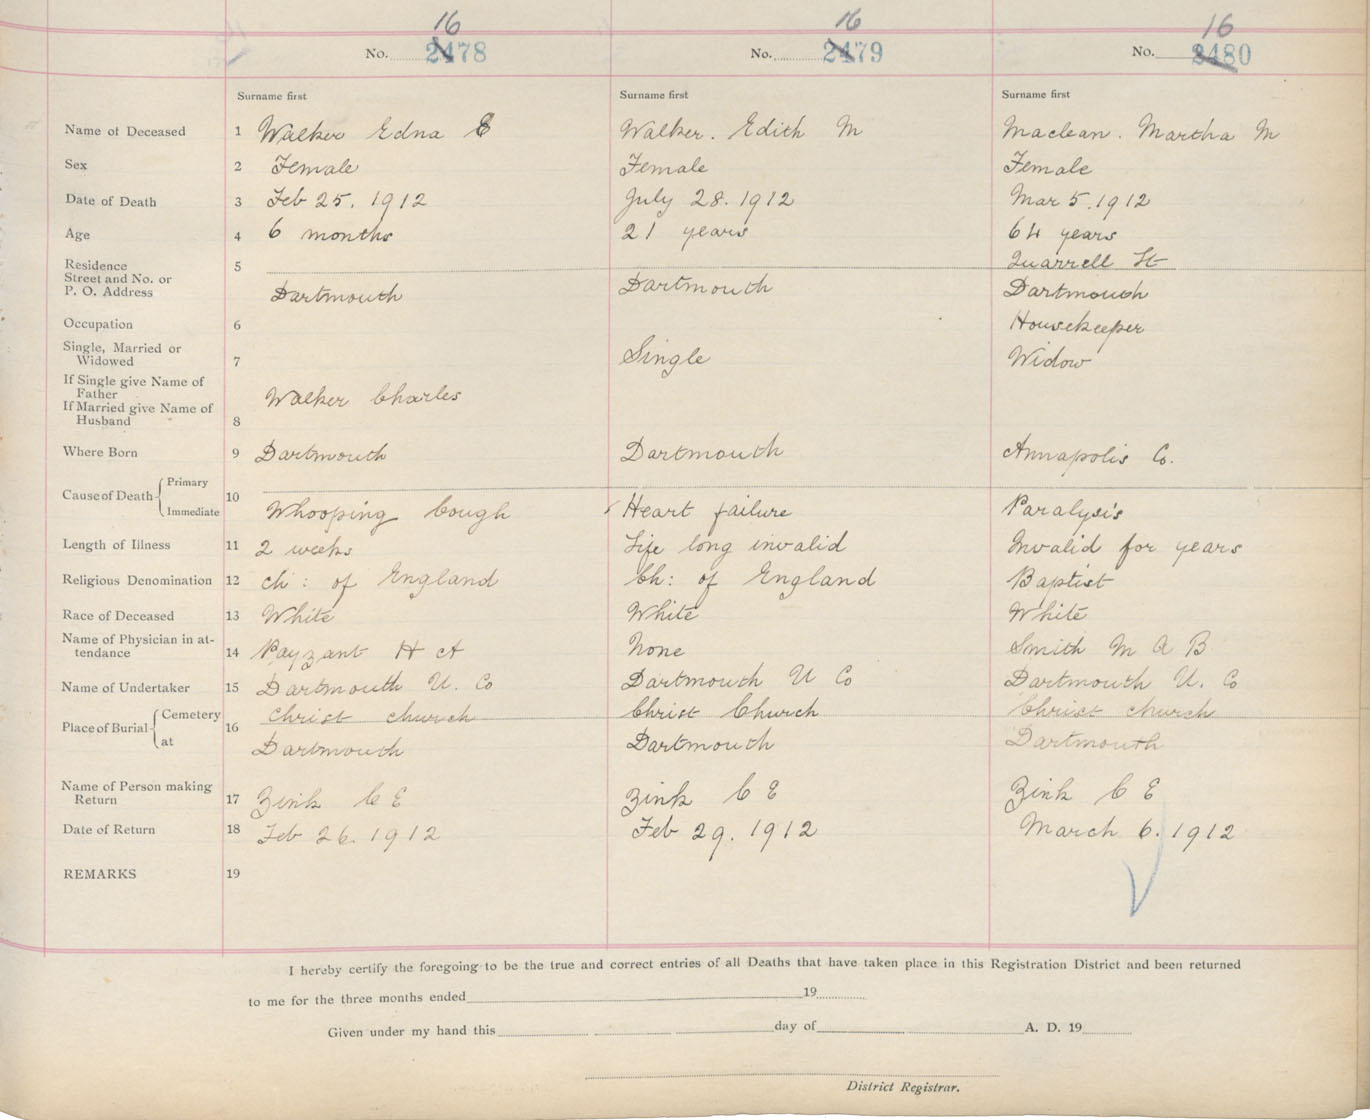 16 16 16
No. 2478 No. 2479 No. 2480
Surname first Surname first Surname first
Name of Deceased 1 Walker Edna E Walker. Edith M Maclean. Martha M
Sex 2 Female Female Female
Date of Death 3 Feb 25. 1912 July 28. 1912 Mar 5. 1912
Age 4 6 months 21 years 64 years
Residence 5 Quarrell St
Street and No. or
P. O. Address Dartmouth Dartmouth Dartmouth
Occupation 6 Housekeeper
Single, Married or
Widowed 7 Single Widow
If Single give Name of
Father Walker Charles
If Married give Name of
Husband 8
Where Born 9 Dartmouth Dartmouth Annapolis Co.
Cause of Death Primary 10
Immediate Whooping Cough Heart failure Paralysis
Length of Illness 11 2 weeks Life long invalid Invalid for years
Religious Denomination 12 Ch: of England Ch: of England Baptist
Race of Deceased 13 White White White
Name of Physician in at-
tendance 14 Payzant H A None Smith M A B
Name of Undertaker 15 Dartmouth U. Co Dartmouth U Co Dartmouth U. Co
Place of Burial Cemetery 16 Christ church Christ Church Christ church
at Dartmouth Dartmouth Dartmouth
Name of Person making
Return 17 Zink C E Zink C E Zink C E
Date of Return 18 Feb 26. 1912 Feb 29. 1912 March 6. 1912
REMARKS 19
I hereby certify the foregoing to be the true and correct entries of all Deaths that have taken place in this Registration District and been returned
to me for the three months ended 19
Given under my hand this day of A. D. 19
District Registrar.